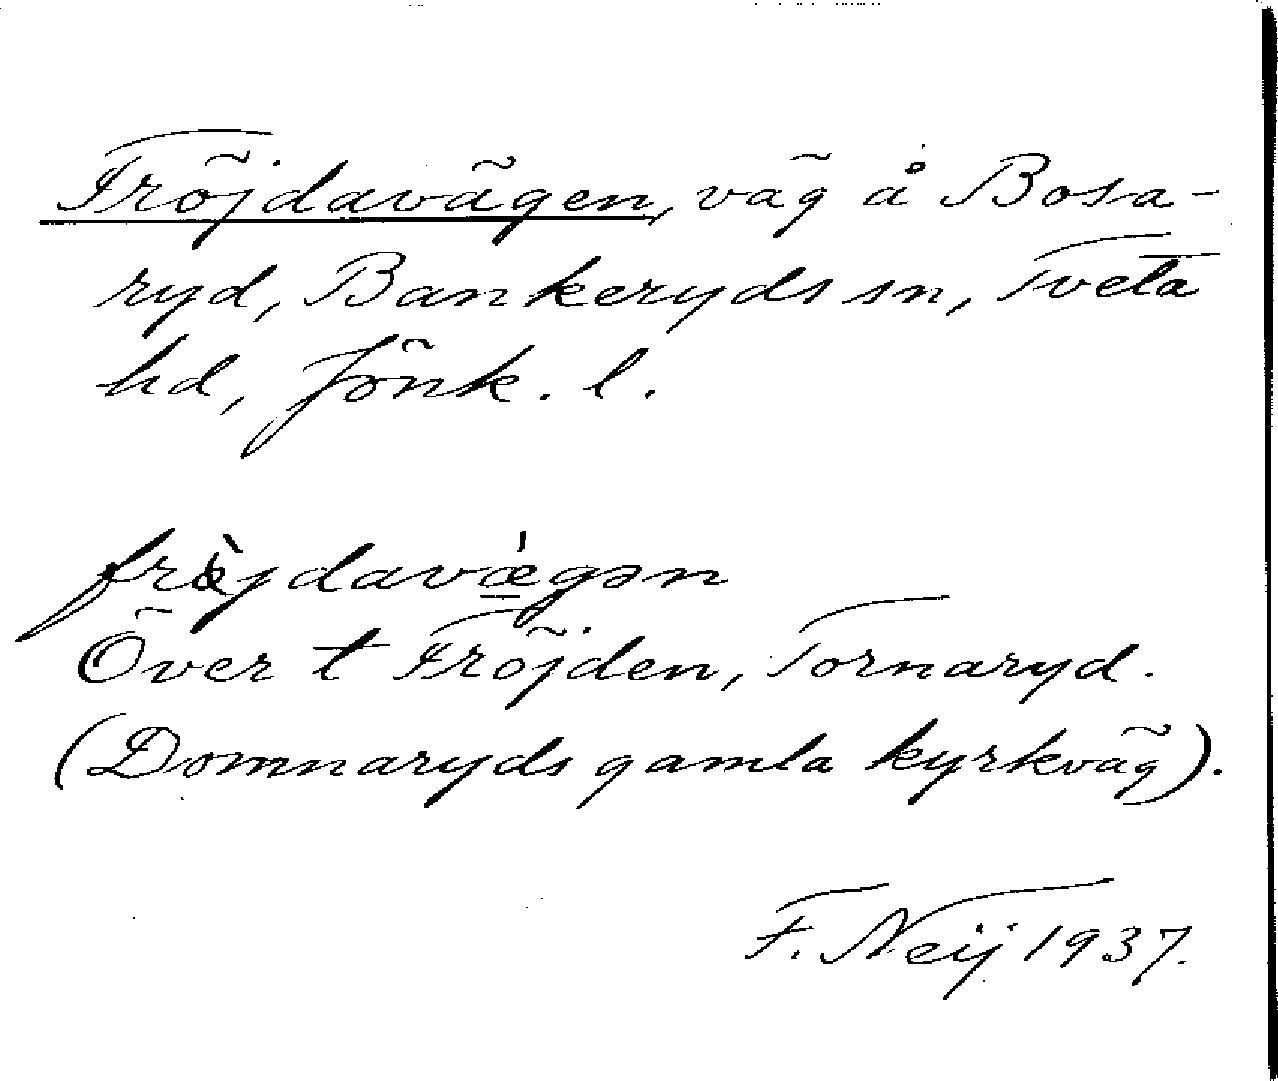 Fröjdavägen, väg å Bosa-
ryd, Bankeryds sn, Tveta
hd, Jönk. l.
frø̀jdavǽgən
Över t Fröjden, Tornaryd.
(Domnaryds gamla kyrkväg).
F. Neij 1937.